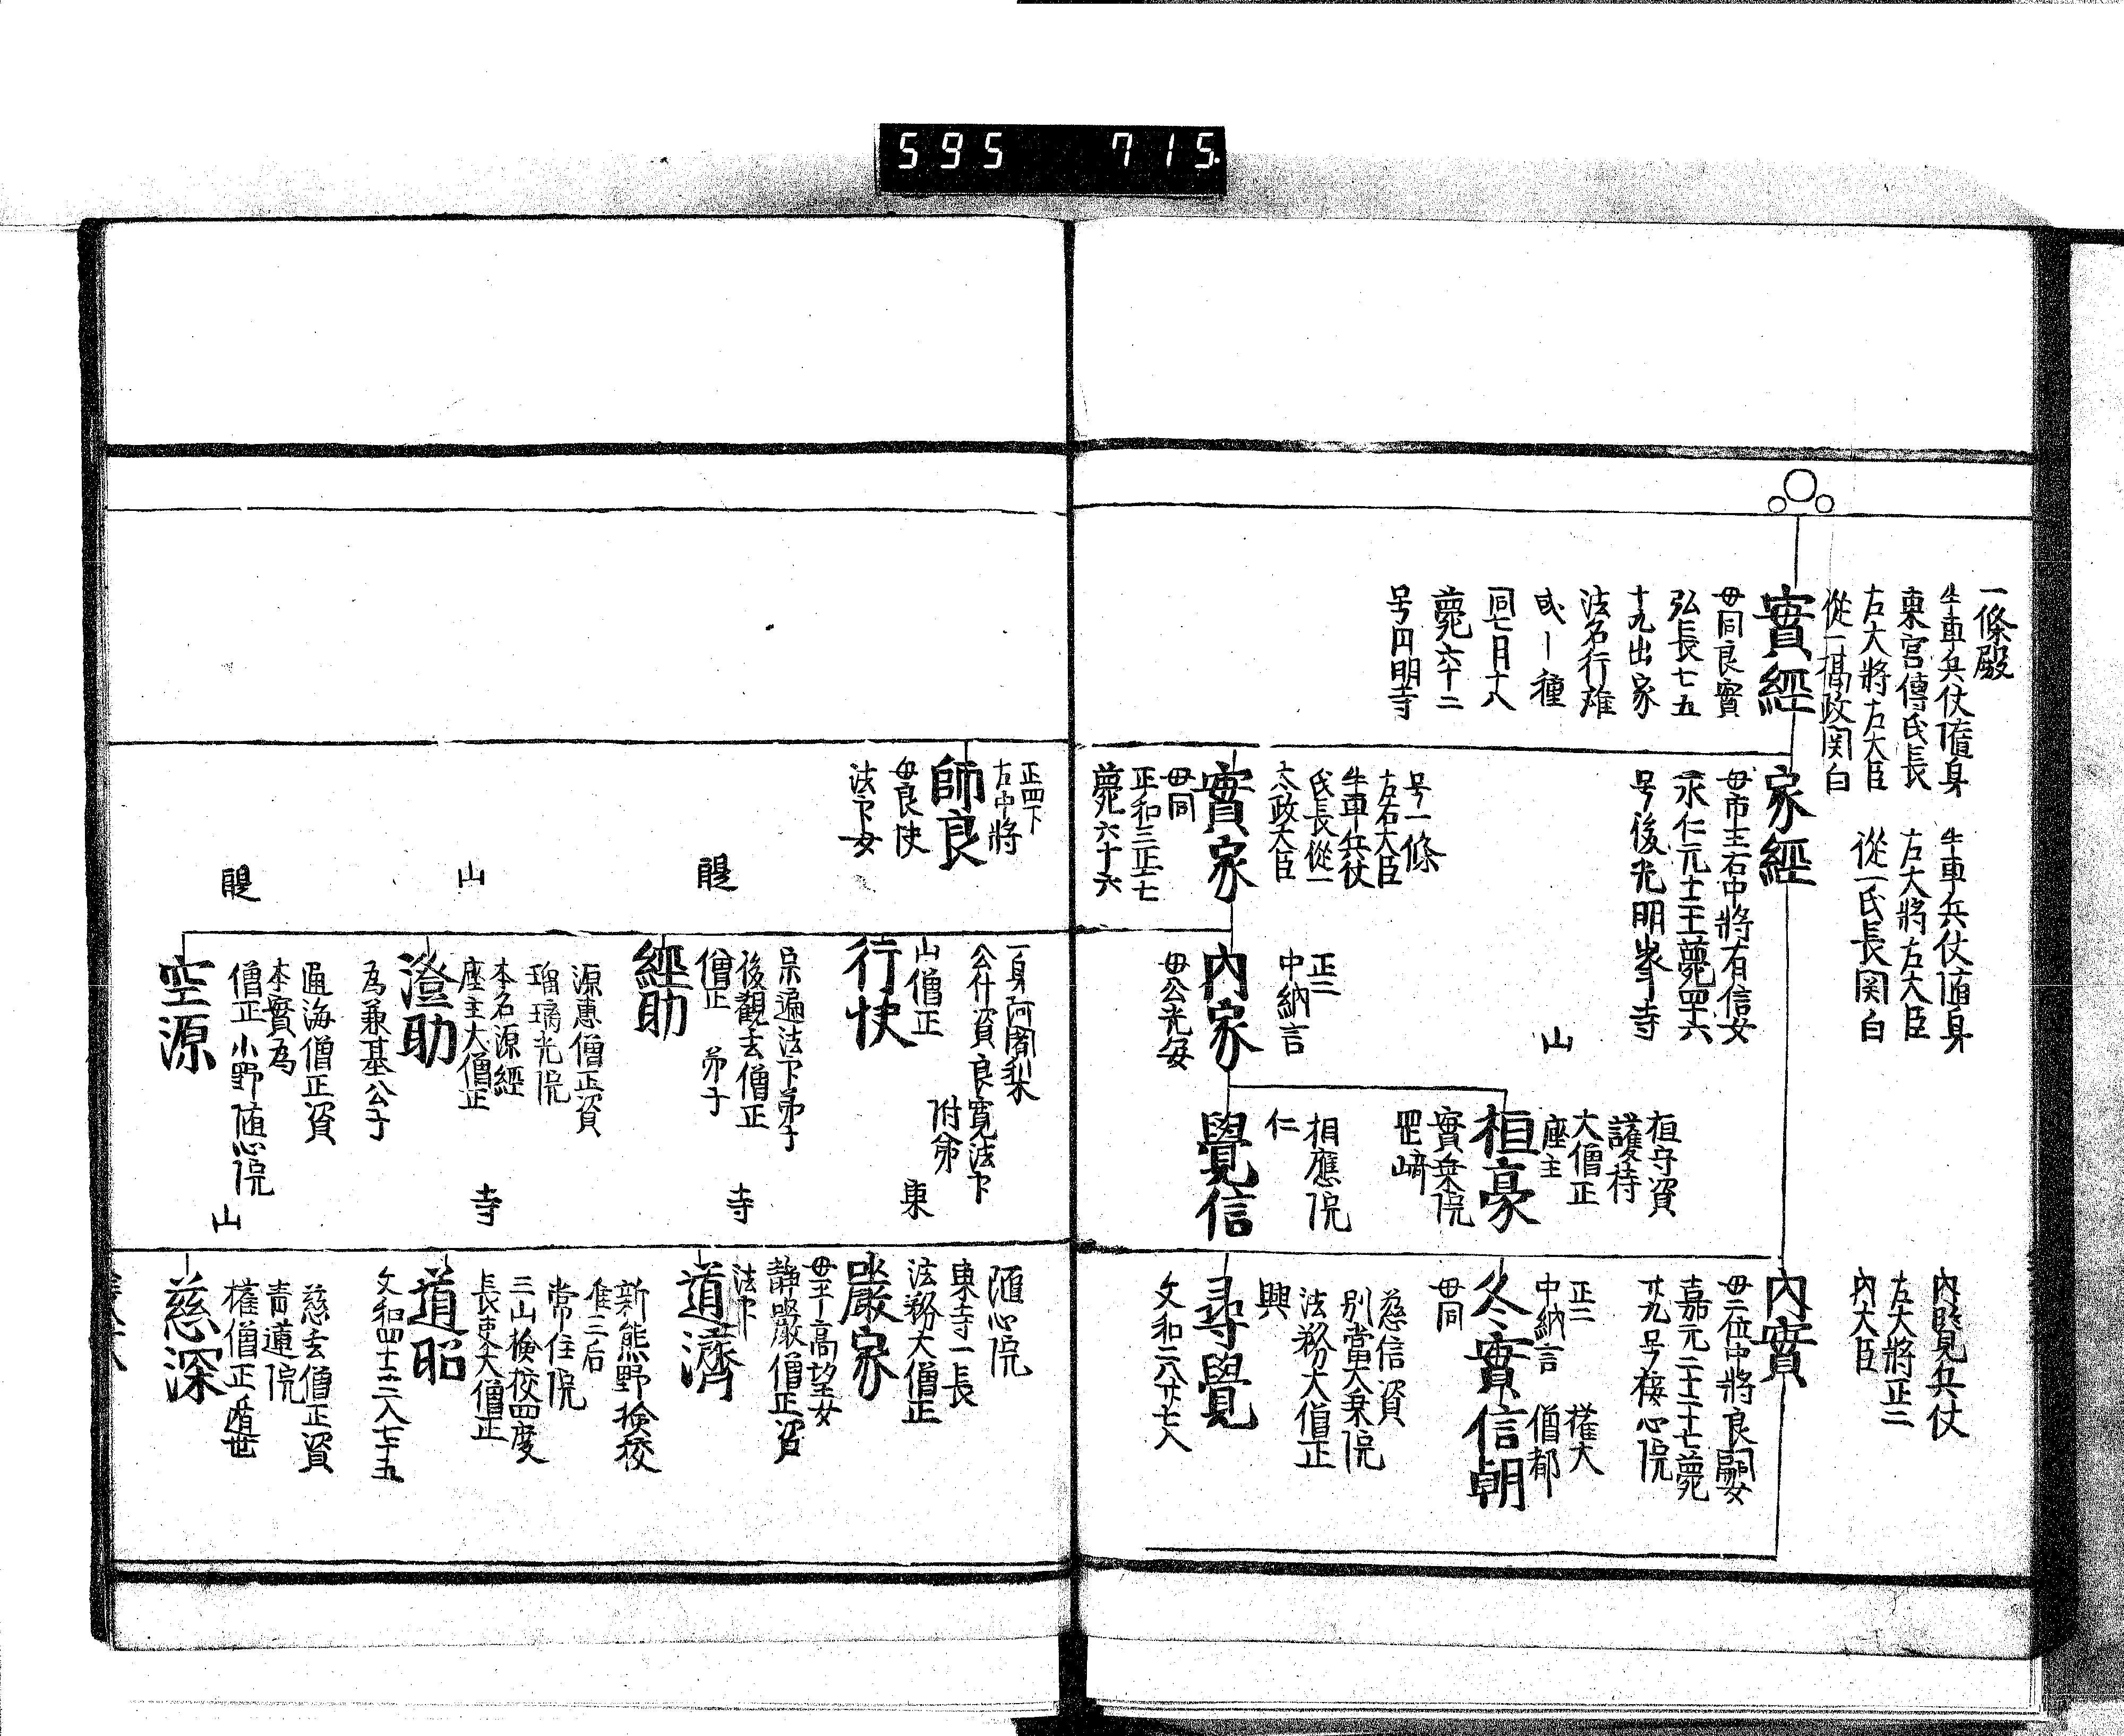 595 715
一條殿
牛車兵仗随身
東宮傅氏長
左大将左大臣
從一摂政関白
實經
母同良實
弘長七五
十九出家
法名行雅
或ー種
同七月十八
薨六十二
号円明寺
牛車兵仗随身
左大将左大臣
從一氏長関白
家經
母市主右中将有信女
永仁元十二十一薨四十六
号後光明峯寺
号一條
左右大臣
牛車兵仗
氏長從一
太政大臣
實家
母同
正和三正七
薨六十六
正二
中納言
内家
母公光女
山
桓守資
護持
大僧正
座主
桓豪
實乗院
岡崎
相應院
仁
覺信
内覧兵仗
左大将正二
内大臣
内實
母三位中将良嗣女
嘉元二十二十七薨
廿九号棲心院
正二
中納言
冬實
母同
権大
僧都
信朝
慈信資
別當大乗院
法務大僧正
興
尋覺
文和二八廿七入
正四下
左中将
師良
母良快
法下女
一身阿闍梨
公什資良寛法下
附弟
山僧正
行快
醍
宗遍法下弟子
後觀玄僧正
僧正 弟子
經助
山
源恵僧正資
瑠璃光院
本名源經
座主大僧正
澄助
為兼基公子
醍
通海僧正資
本實為
僧正小野随心院
空源
東
随心院
東寺一長
法務大僧正
嚴家
母主ー高望女
静嚴僧正資
法下
寺
道濟
新熊野検校
准三后
常住院
三山検校四度
長吏大僧正
寺
道昭
文和四十二二入七十五
慈玄僧正資
青蓮院
権僧正遁世
山
慈深